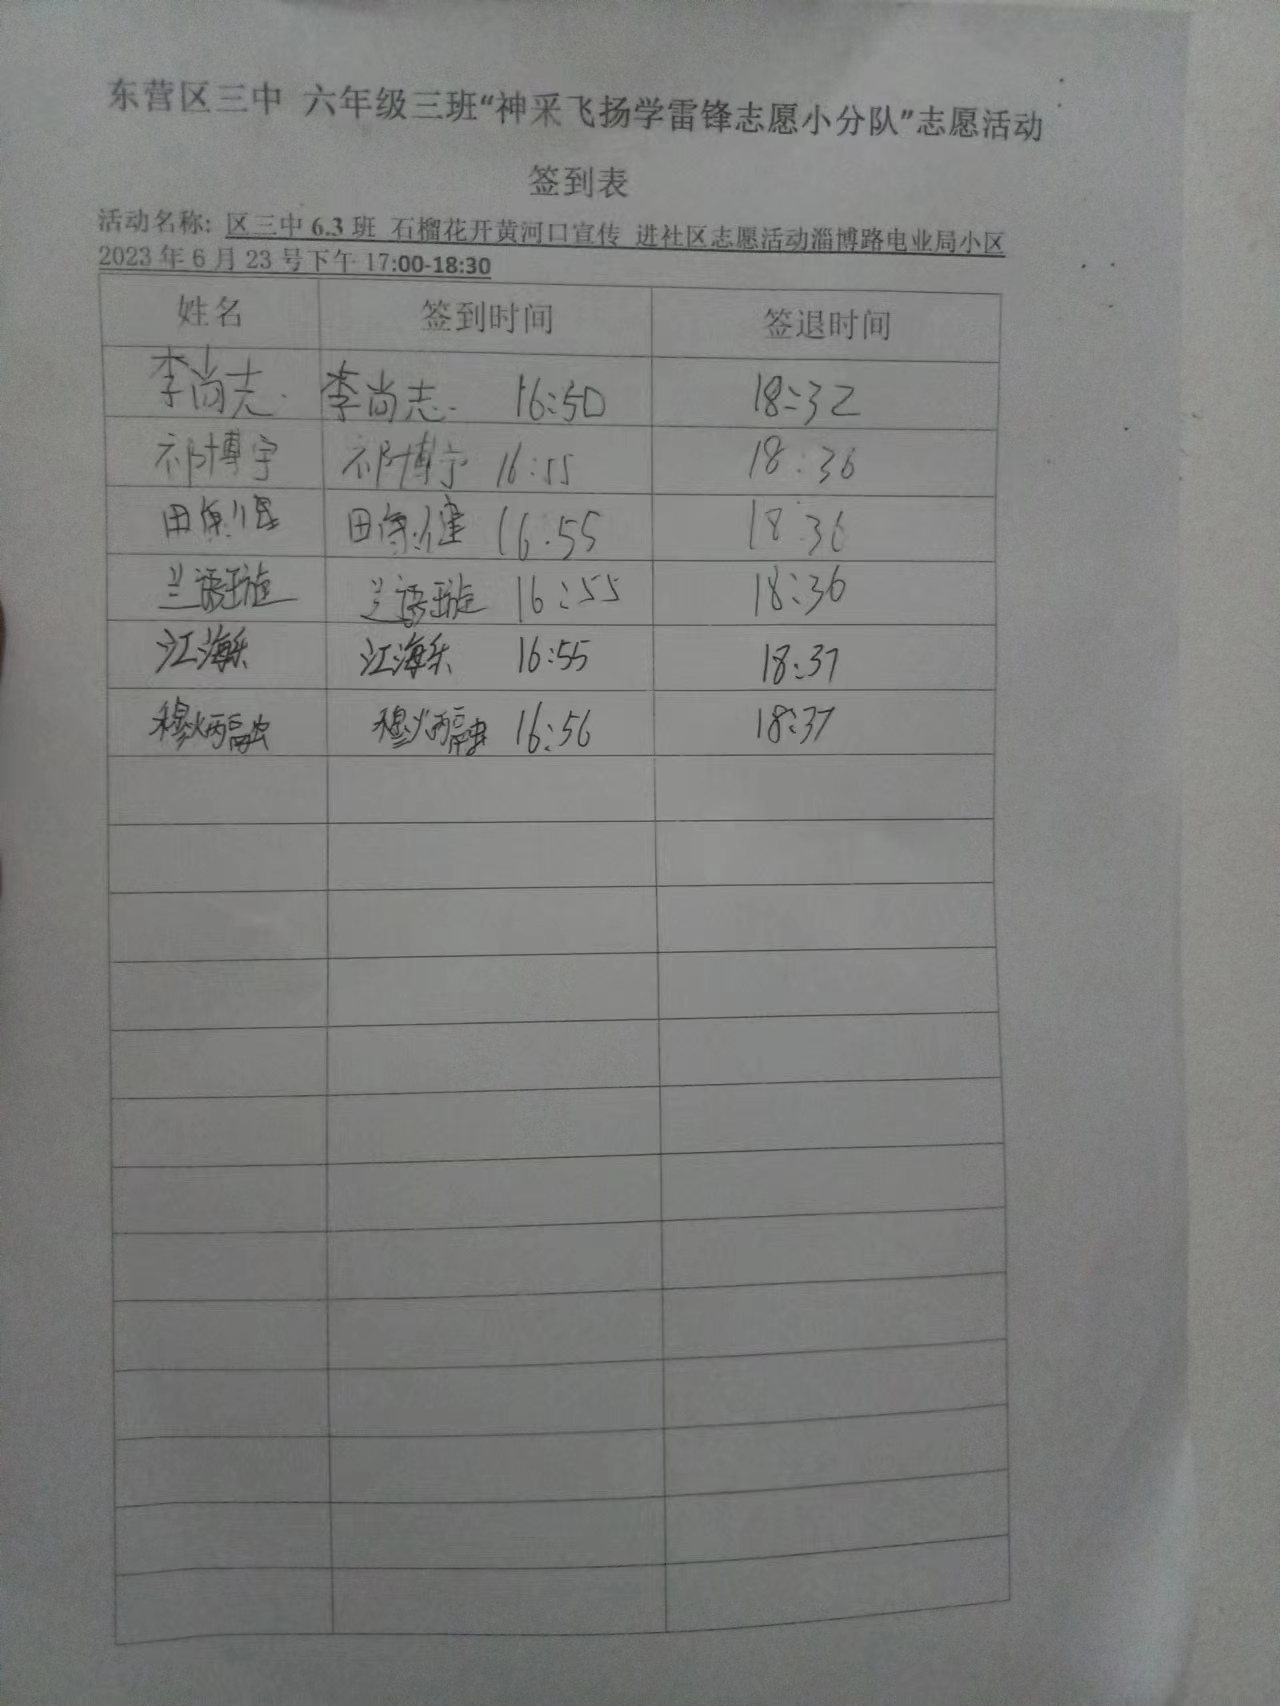 东营区三中 六年级三班“神采飞扬学雷锋志愿小分队”志愿活动
签到表
活动名称: 区三中 6.3 班 石榴花开黄河口宣传 进社区志愿活动淄博路电业局小区
2023 年 6 月 23 号下午 17:00-18:30
姓名 签到时间 签退时间
李尚志. 李尚志. 16:50 18:32
祁博宇 祁博宇 16:55 18:36
田 田 16:55 18:36
兰语璇 兰语璇 16:55 18:36
江海乐 江海乐 16:55 18:37
穆炳融 穆炳融 16:56 18:37